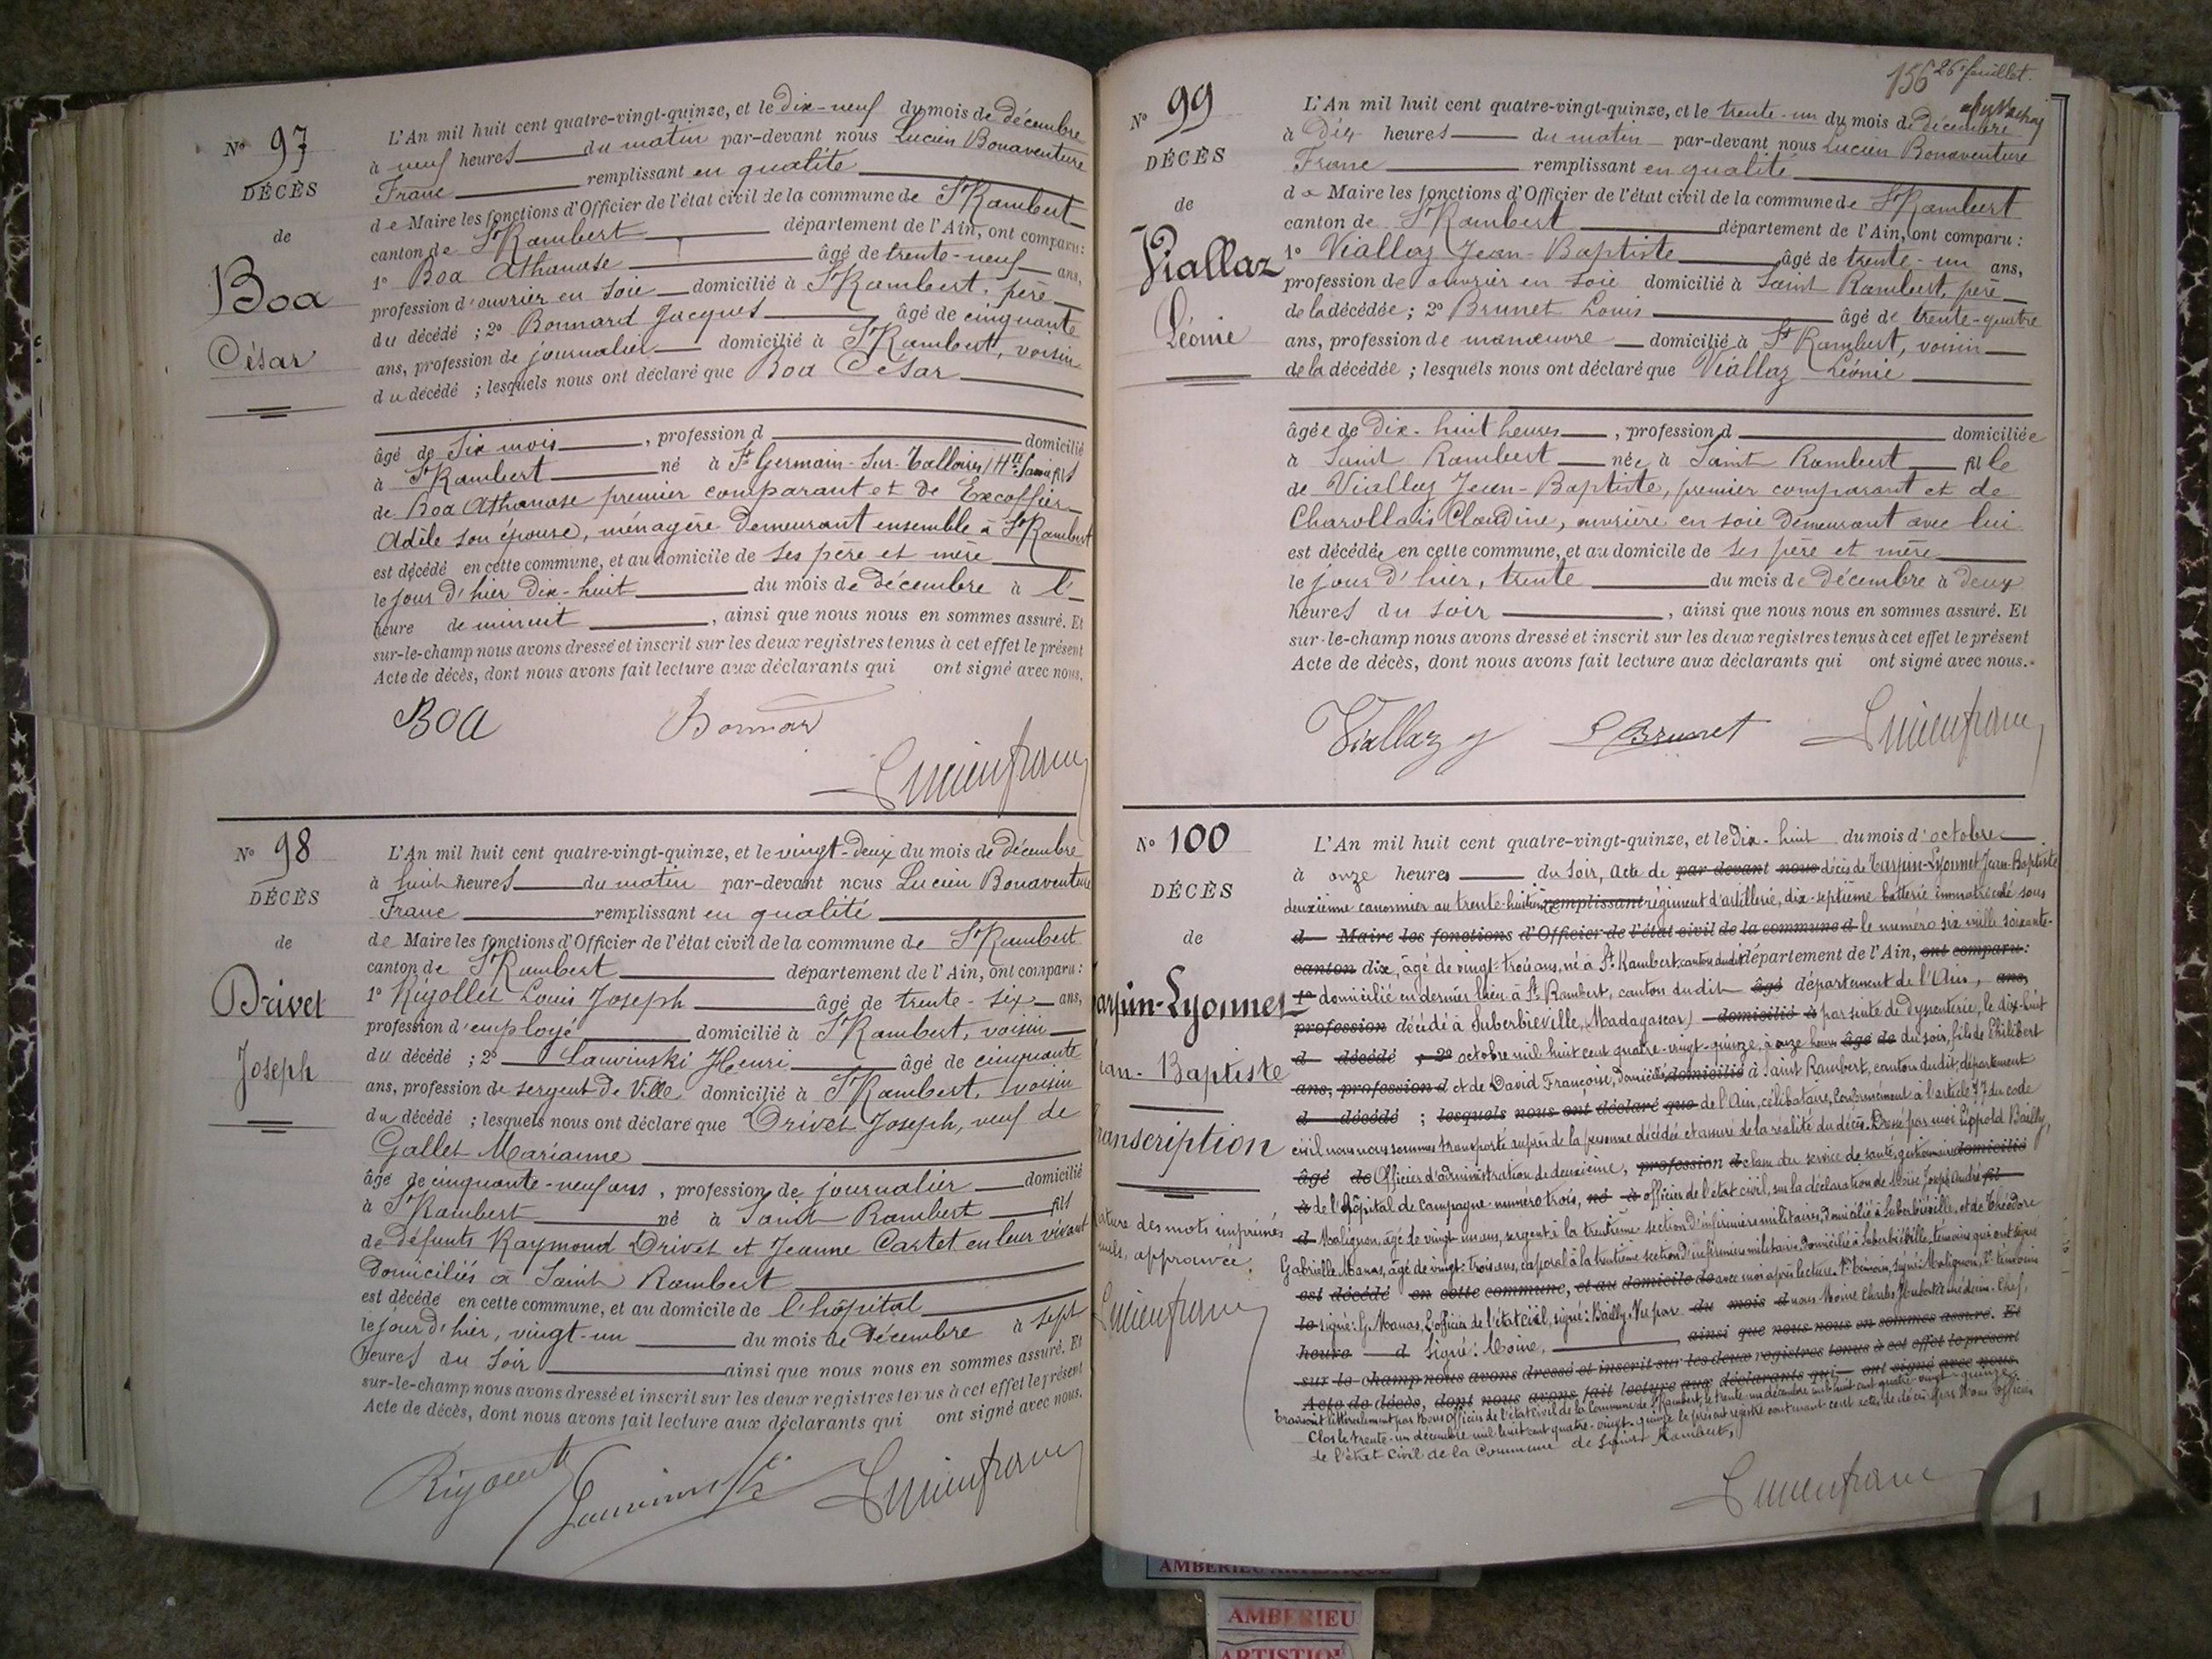 N° 97
DÉCÈS
de
Boa
César
L'An mil huit cent quatre-vingt-quinze, et le dix-neuf du mois de décembre
à neuf heures du matin par-devant nous Lucien Bonaventure
Franc remplissant en qualité
de Maire les fonctions d'Officier de l'état civil de la commune de St Rambert
canton de St Rambert département de l'Ain, ont comparu :
1° Boa Athanase âgé de trente-neuf ans,
profession d'ouvrier en soie domicilié à St Rambert, père
du décédé ; 2° Bonnard Jacques âgé de cinquante
ans, profession de journalier domicilié à St Rambert, voisin
du décédé ; lesquels nous ont déclaré que Boa César
âgé de six mois, profession d domicilié
à St Rambert né à St Germain-sur-Talloires (Hte Savoie) fils
de Boa Athanase premier comparant et de Excoffier
Adèle son épouse, ménagère demeurant ensemble à St Rambert
est décédé en cette commune, et au domicile de ses père et mère
le jour d'hier dix-huit du mois de décembre à l'
heure de minuit, ainsi que nous nous en sommes assuré. Et
sur-le-champ nous avons dressé et inscrit sur les deux registres tenus à cet effet le présent
Acte de décès, dont nous avons fait lecture aux déclarants qui ont signé avec nous.
Boa Bonnard
Lucien franc
N° 98
DÉCÈS
de
Drivet
Joseph
L'An mil huit cent quatre-vingt-quinze, et le vingt-deux du mois de décembre
à huit heures du matin par-devant nous Lucien Bonaventure
Franc remplissant en qualité
de Maire les fonctions d'Officier de l'état civil de la commune de St Rambert
canton de St Rambert département de l'Ain, ont comparu :
1° Rigollet Louis Joseph âgé de trente-six ans,
profession d'employé domicilié à St Rambert, voisin
du décédé ; 2° Lauvinski Henri âgé de cinquante
ans, profession de sergent de Ville domicilié à St Rambert, voisin
du décédé ; lesquels nous ont déclaré que Drivet Joseph, veuf de
Gallet Marianne
âgé de cinquante-neuf ans, profession de journalier domicilié
à St Rambert né à Saint Rambert fils
de défunts Raymond Drivet et Jeanne Cartet en leur vivant
domiciliés à Saint Rambert
est décédé en cette commune, et au domicile de l'hôpital
le jour d'hier, vingt-un du mois de décembre à sept
heures du soir ainsi que nous nous en sommes assuré. Et
sur-le-champ nous avons dressé et inscrit sur les deux registres tenus à cet effet le présent
Acte de décès, dont nous avons fait lecture aux déclarants qui ont signé avec nous.
Lucien franc
156 26e feuillet.
N° 99
DÉCÈS
de
Viallaz
Léonie
L'An mil huit cent quatre-vingt-quinze, et le trente-un du mois de décembre
à dix heures du matin par-devant nous Lucien Bonaventure
Franc remplissant en qualité
de Maire les fonctions d'Officier de l'état civil de la commune de St Rambert
canton de St Rambert département de l'Ain, ont comparu :
1° Viallaz Jean-Baptiste âgé de trente-un ans,
profession de ouvrier en soie domicilié à Saint Rambert, père
de la décédée ; 2° Brunet Louis âgé de trente-quatre
ans, profession de manœuvre domicilié à St Rambert, voisin
de la décédée ; lesquels nous ont déclaré que Viallaz Léonie
âgée de dix-huit heures, profession d domiciliée
à Saint Rambert née à Saint Rambert fille
de Viallaz Jean-Baptiste, premier comparant et de
Charollais Claudine, ouvrière en soie demeurant avec lui
est décédée en cette commune, et au domicile de ses père et mère
le jour d'hier, trente du mois de décembre à deux
heures du soir, ainsi que nous nous en sommes assuré. Et
sur-le-champ nous avons dressé et inscrit sur les deux registres tenus à cet effet le présent
Acte de décès, dont nous avons fait lecture aux déclarants qui ont signé avec nous.
Viallaz L Brunet Lucien franc
N° 100
DÉCÈS
de
arpin-Lyonnet
ean-Baptiste
ranscription
ature des mots imprimés
nuls, approuvée.
Lucien franc
L'An mil huit cent quatre-vingt-quinze, et le dix-huit du mois d'octobre
à onze heures du soir, acte de par devant nous décès de Tarpin-Lyonnet Jean-Baptiste
deuxième canonnier au trente-huitième remplissant régiment d'artillerie, dix-septième batterie immatriculé sous
d Maire les fonctions d'Officier de l'état civil de la commune d le numéro six mille soixante-
canton dix, âgé de vingt-trois ans, né à St Rambert, canton dudit département de l'Ain, ont comparu :
1° domicilié en dernier lieu à St Rambert, canton dudit âgé département de l'Ain, ans,
profession décédé à Suberbieville, (Madagascar) domicilié à par suite de dysenterie, le dix-huit
d décédé ; 2° octobre mil huit cent quatre-vingt-quinze, à onze heures âgé de du soir, fils de Philibert
ans, profession d et de David Françoise, domiciliés domicilié à Saint Rambert, canton dudit, département
d décédé ; lesquels nous ont déclaré que de l'Ain, célibataire, Conformément à l'article 77 du code
civil nous nous sommes transporté auprès de la personne décédée et assuré de la réalité du décès. Dressé par moi Léopold Bailly,
âgé de Officier d'administration de deuxième, profession d classe du service de santé, gestionnaire domicilié
à de l'Hôpital de campagne numéro trois, né à officier de l'état civil, sur la déclaration de Moïse Joseph André fil
d Malignon, âgé de vingt un ans, sergent à la treizième section d'infirmiers militaires, domicilié à Suberbiéville, et de Théodore
Gabrielle Manas, âgé de vingt-trois ans, caporal à la trentième section d'infirmiers militaires, domicilié à Suberbiéville, témoins qui ont signé
est décédé en cette commune, et au domicile de avec moi après lecture. 1er témoin, signé: Malignon, 2e témoin
le signé: G. Manas, L'officier de l'état civil, signé: Bailly. Vu par du mois d nous Moine Charles médecin-Chef,
heure d Signé: Moine, ainsi que nous nous en sommes assuré. Et
sur-le-champ nous avons dressé et inscrit sur les deux registres tenus à cet effet le présent
Acte de décès, dont nous avons fait lecture aux déclarants qui ont signé avec nous.
Transcrit littéralement par Nous Officier de l'état Civil de la Commune de St Rambert, le trente-un décembre mil huit cent quatre-vingt-quinze.
Clos le trente-un décembre mil huit cent quatre-vingt-quinze le présent registre contenant cent actes de décès par Nous Officier
de l'état Civil de la Commune de Saint Rambert,
Lucien franc
AMBERIEU ARTISTIQUE
AMBERIEU
ARTISTIQU